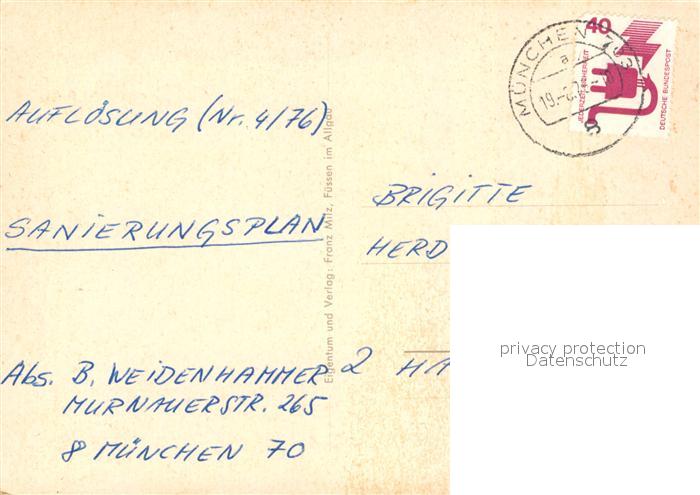 AUFLÖSUNG (Nr. 4/76)
SANIERUNGSPLAN
Abs. B. WEIDENHAMMER
MURNAUERSTR. 265
8 MÜNCHEN 70
Eigentum und Verlag: Franz Milz, Füssen im Allgäu
MÜNCHEN
a
40
JEDERZEIT SICHERHEIT
DEUTSCHE BUNDESPOST
BRIGITTE
HERD
2 HA
privacy protection
Datenschutz